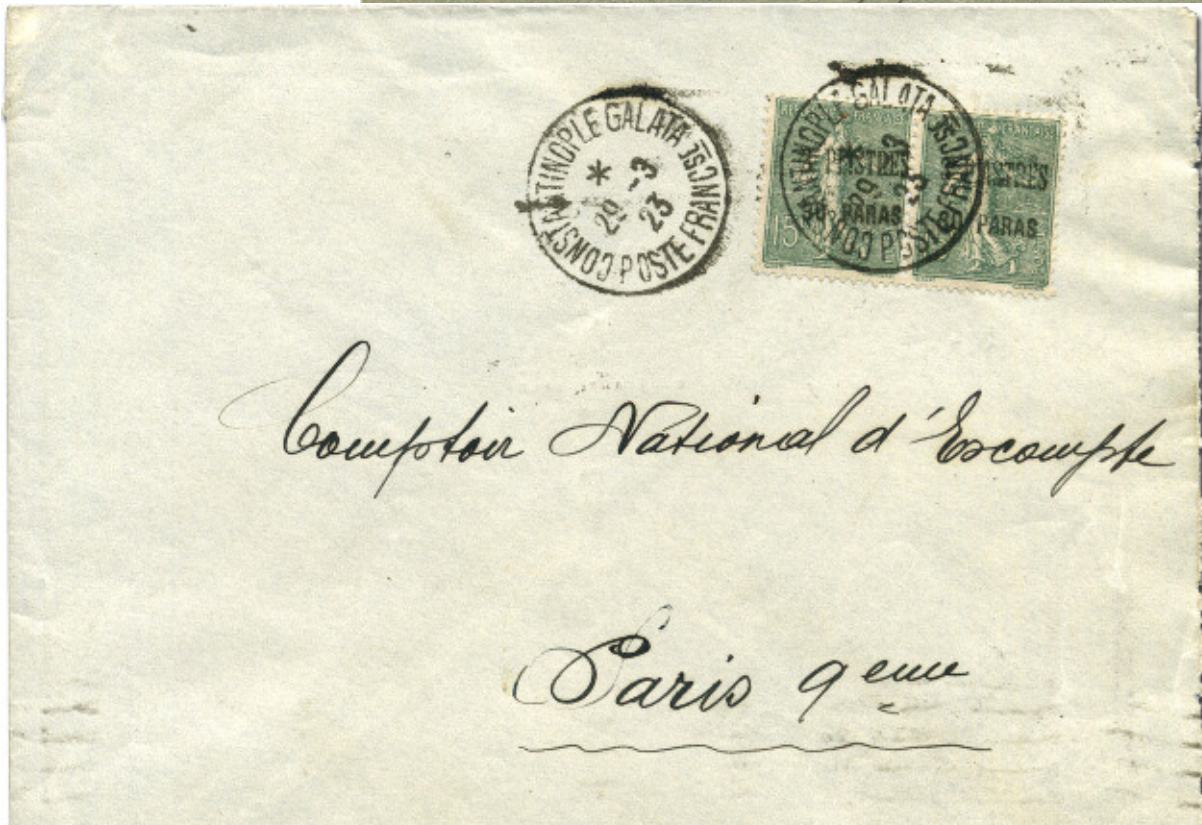 CONSTANTINOPLE GALATA
*
29 -3
23
POSTE FRANÇSE
CONSTANTINOPLE GALATA
*
29 -3
23
POSTE FRANÇSE
PIASTRES
PARAS
15
PIASTRES
PARAS
Comptoir National d'Escompte
Paris 9eme